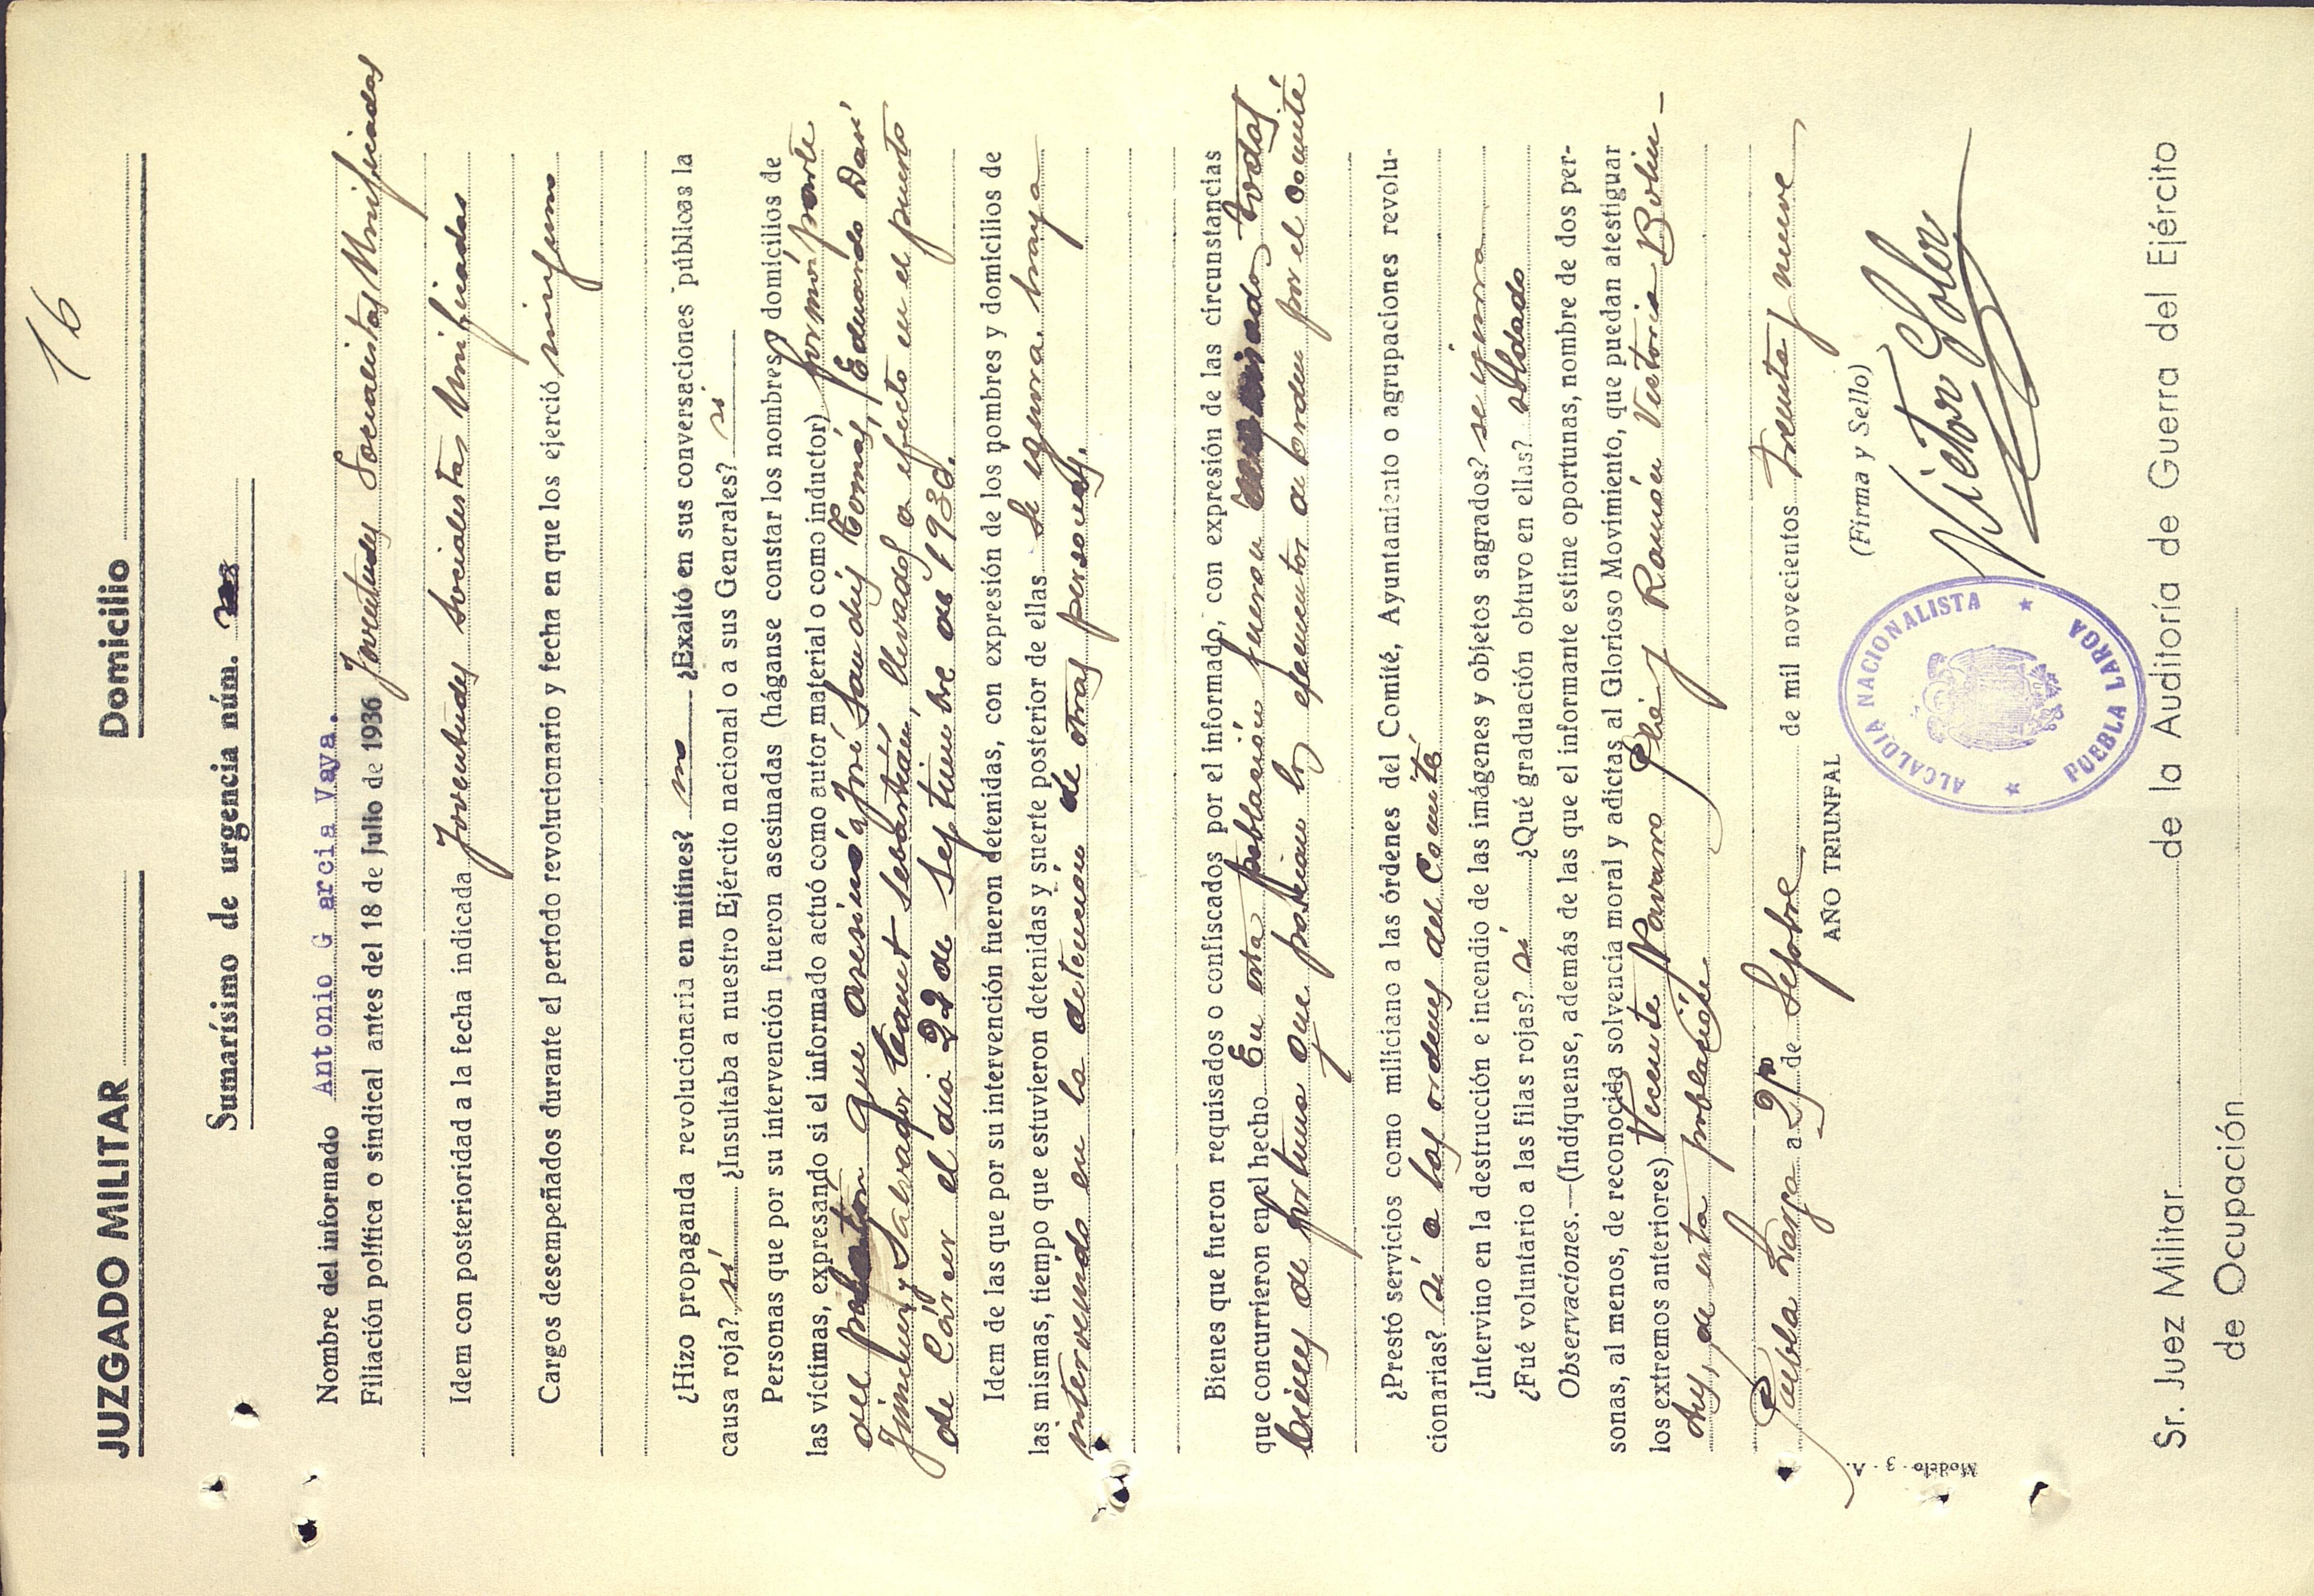 16
JUZGADO MILITAR Domicilio
Sumarísimo de urgencia núm.
Nombre del informado Antonio G arcia Vaya.
Filiación política o sindical antes del 18 de Julio de 1936 Joventudes Socialistas Unificadas
Idem con posterioridad a la fecha indicada Joventudes Socialestas Unificadas
Cargos desempeñados durante el período revolucionario y fecha en que los ejerció ninguno
¿Hizo propaganda revolucionaria en mitines? no ¿Exaltó en sus conversaciones públicas la
causa roja? sí ¿Insultaba a nuestro Ejército nacional o a sus Generales? si
Personas que por su intervención fueron asesinadas (háganse constar los nombres y domicilios de
las víctimas, expresando si el informado actuó como autor material o como inductor) formó parte
del que asesinó a José Sanchis Tomás, Eduardo Darí
Jimenez y Salvador Canut Sebastián, llevados a efecto en el puerto
de Cárcer el dia 22 de Septiembre de 1936.
Idem de las que por su intervención fueron detenidas, con expresión de los nombres y domicilios de
las mismas, tiempo que estuvieron detenidas y suerte posterior de ellas Se ignora. haya
intervenido en la detención de otras personas.
Bienes que fueron requisados o confiscados por el informado, con expresión de las circunstancias
que concurrieron en el hecho En esta población fueron todos
bienes de fortuna que poseian los elementos de orden por el Comité
¿Prestó servicios como miliciano a las órdenes del Comité, Ayuntamiento o agrupaciones revolu-
cionarias? Si a las ordenes del Comité
¿Intervino en la destrucción e incendio de las imágenes y objetos sagrados? se ignora
¿Fué voluntario a las filas rojas? si ¿Qué graduación obtuvo en ellas? soldado
Observaciones.—(Indíquense, además de las que el informante estime oportunas, nombre de dos per-
sonas, al menos, de reconocida solvencia moral y adictas al Glorioso Movimiento, que puedan atestiguar
los extremos anteriores) Vicente Navarro Plá y Ramón Victoria Bolin-
ches, de esta población
Puebla Larga a 29 de Sepbre de mil novecientos treinta y nueve
AÑO TRIUNFAL
(Firma y Sello)
Victor Soler
ALCALDIA NACIONALISTA
PUEBLA LARGA
Modelo 3-A.
Sr. Juez Militar de la Auditoría de Guerra del Ejército
de Ocupación